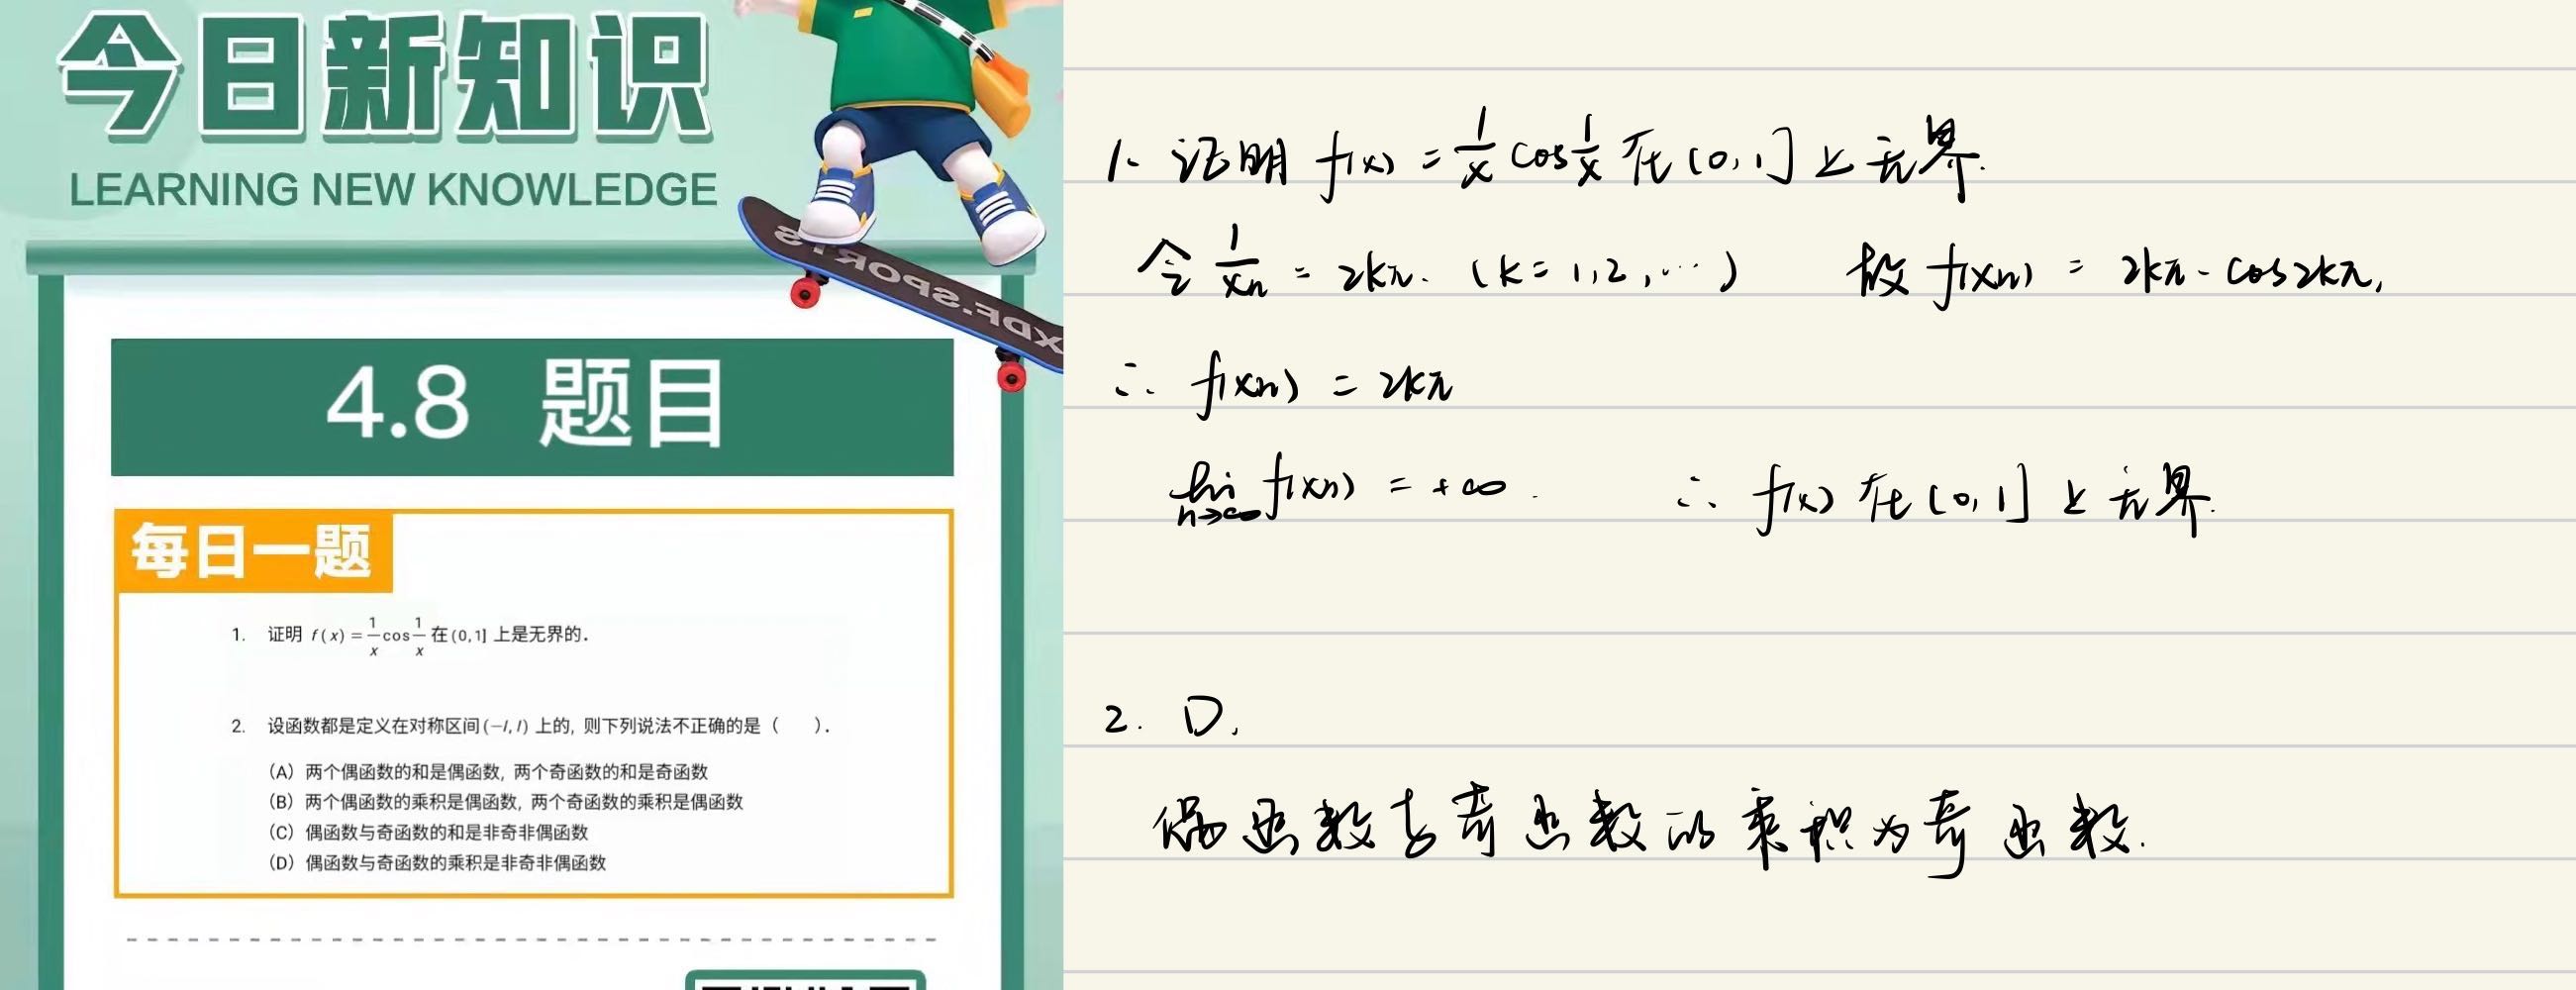 今日新知识
LEARNING NEW KNOWLEDGE
XDF.SPORTS
4.8 题目
每日一题
1. 证明 f(x)=1/x cos 1/x 在(0,1]上是无界的.
2. 设函数都是定义在对称区间(-l,l)上的, 则下列说法不正确的是( ).
(A) 两个偶函数的和是偶函数, 两个奇函数的和是奇函数
(B) 两个偶函数的乘积是偶函数, 两个奇函数的乘积是偶函数
(C) 偶函数与奇函数的和是非奇非偶函数
(D) 偶函数与奇函数的乘积是非奇非偶函数
1. 证明 f(x) = 1/x cos 1/x 在(0,1]上无界.
令 1/xn = 2kπ. (k=1,2,…) 故 f(xn) = 2kπ·cos2kπ,
∴ f(xn) = 2kπ
lim n→∞ f(xn) = +∞. ∴ f(x) 在(0,1]上无界.
2. D.
偶函数与奇函数的乘积为奇函数.